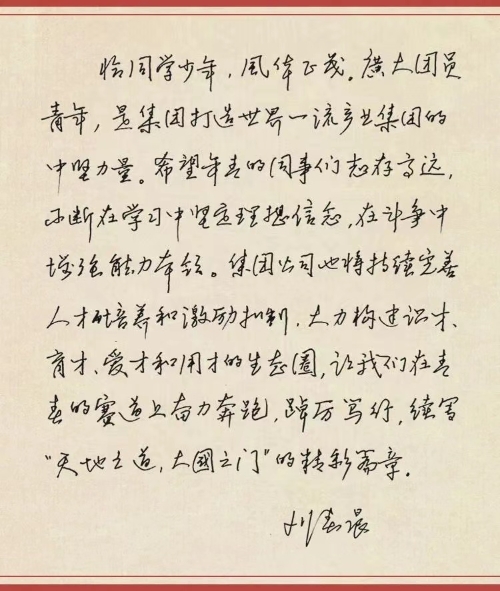 恰同学少年，風华正茂。廣大团员
青年，是集团打造世界一流产业集团的
中坚力量。希望年青的同事们志存高远，
不断在学习中坚定理想信念，在斗争中
增强能力本领。集团公司也将持续完善
人才培养和激励机制，大力构建识才、
育才、爱才和用才的生态圈，让我们在青
春的赛道上奋力奔跑，踔厉笃行，续写
“天地之道，大國之门”的精彩篇章。